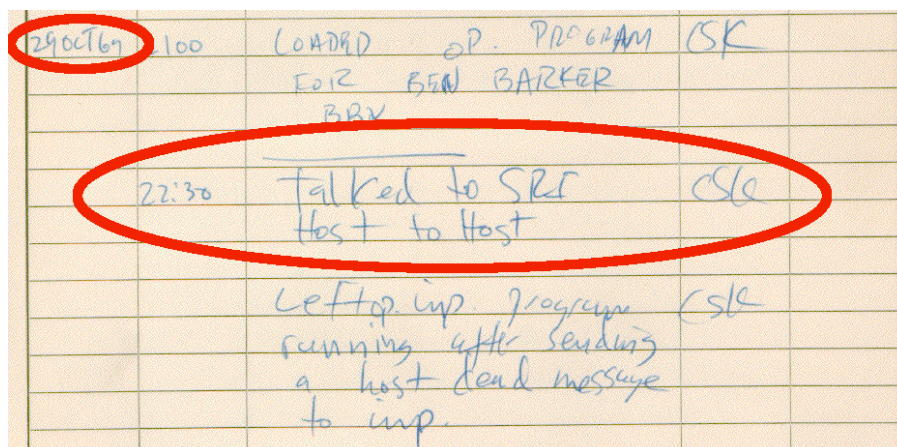 29OCT69 2100 LOADED OP. PROGRAM CSK
FOR BEN BARKER
BBN
22:30 Talked to SRI CSK
Host to Host
Left op. imp program CSK
running after sending
a host dead message
to imp.